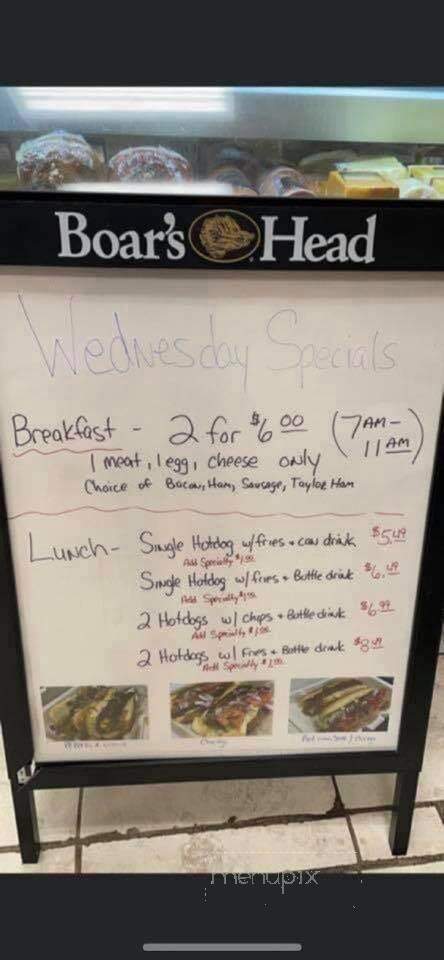 Boar's Head
Wednesday Specials
Breakfast - 2 for $6.00 (7AM-11AM)
1 meat, 1 egg, cheese only
Choice of Bacon, Ham, Sausage, Taylor Ham
Lunch - Single Hotdog w/fries + can drink $5.49
Add Specialty $1.00
Single Hotdog w/fries + Bottle drink $6.49
Add Specialty $1.00
2 Hotdogs w/ chips + Bottle drink $6.99
Add Specialty $1.00
2 Hotdogs w/ Fries + Bottle drink $8.49
Add Specialty $1.00
menupix